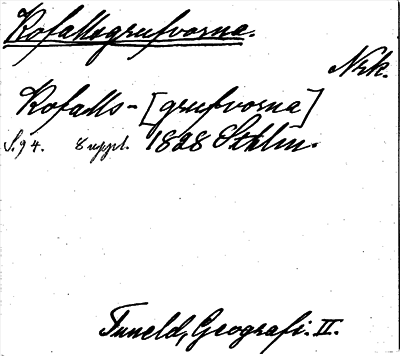 Kofallsgrufvorna.
Nrk.
Kofalls-[grufvorna]
S. 94. 8 uppl. 1828 Sthlm.
Tuneld, Geografi. II.